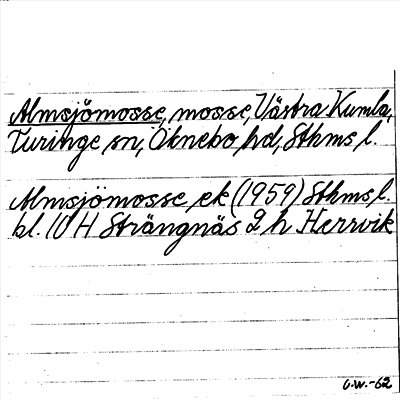 Almsjömosse, mosse, Västra Kumla,
Turinge sn, Öknebo hd, Sthms l.
Almsjömosse ek (1959) Sthms l.
bl. 10 H Strängnäs 2 h Herrvik
G.W.-62